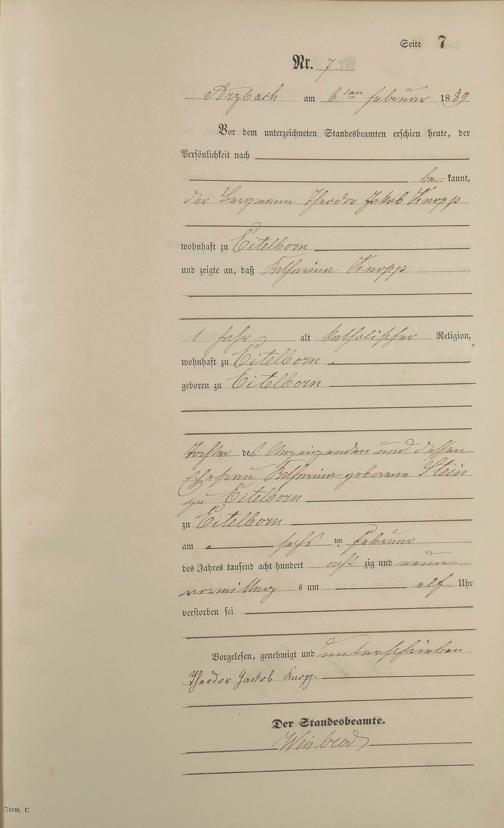 Seite 7
Nr. 7
Arzbach am 6ten Februar 1889
Vor dem unterzeichneten Standesbeamten erschien heute, der
Persönlichkeit nach
be kannt,
der Bergmann Theodor Jakob Knopp
wohnhaft zu Eitelborn
und zeigte an, daß Katharina Knopp
1 Jahr alt katholischer Religion,
wohnhaft zu Eitelborn
geboren zu Eitelborn
Tochter des Anzeigenden und dessen
Ehefrau Katharina geborene Stein
zu Eitelborn
zu Eitelborn
am sechsten Februar
des Jahres tausend acht hundert acht zig und neun
vormittags um elf Uhr
verstorben sei
Vorgelesen, genehmigt und unterschrieben
Theodor Jackob Knopp
Der Standesbeamte.
Form. C.